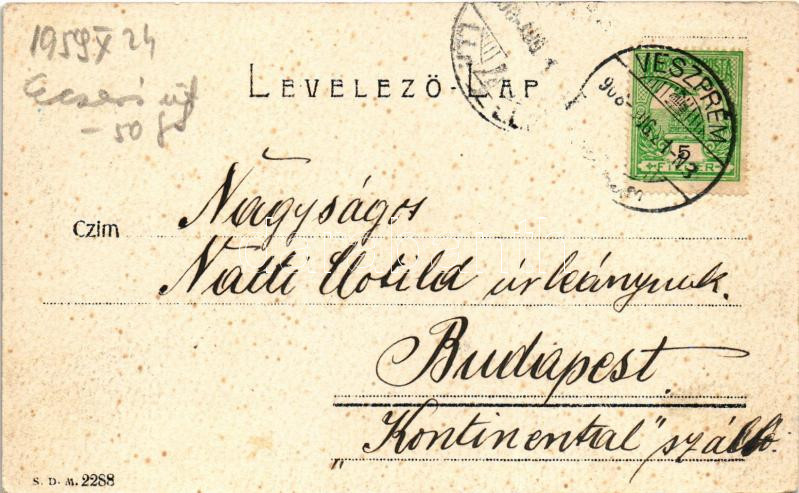 1959 X 24
- 50 f
LEVELEZŐ-LAP
VESZPRÉM
5
Czim
Nagyságos
Natti Clotild úrleánynak.
Budapest
„Kontinental" szálló.
S. D. M. 2288